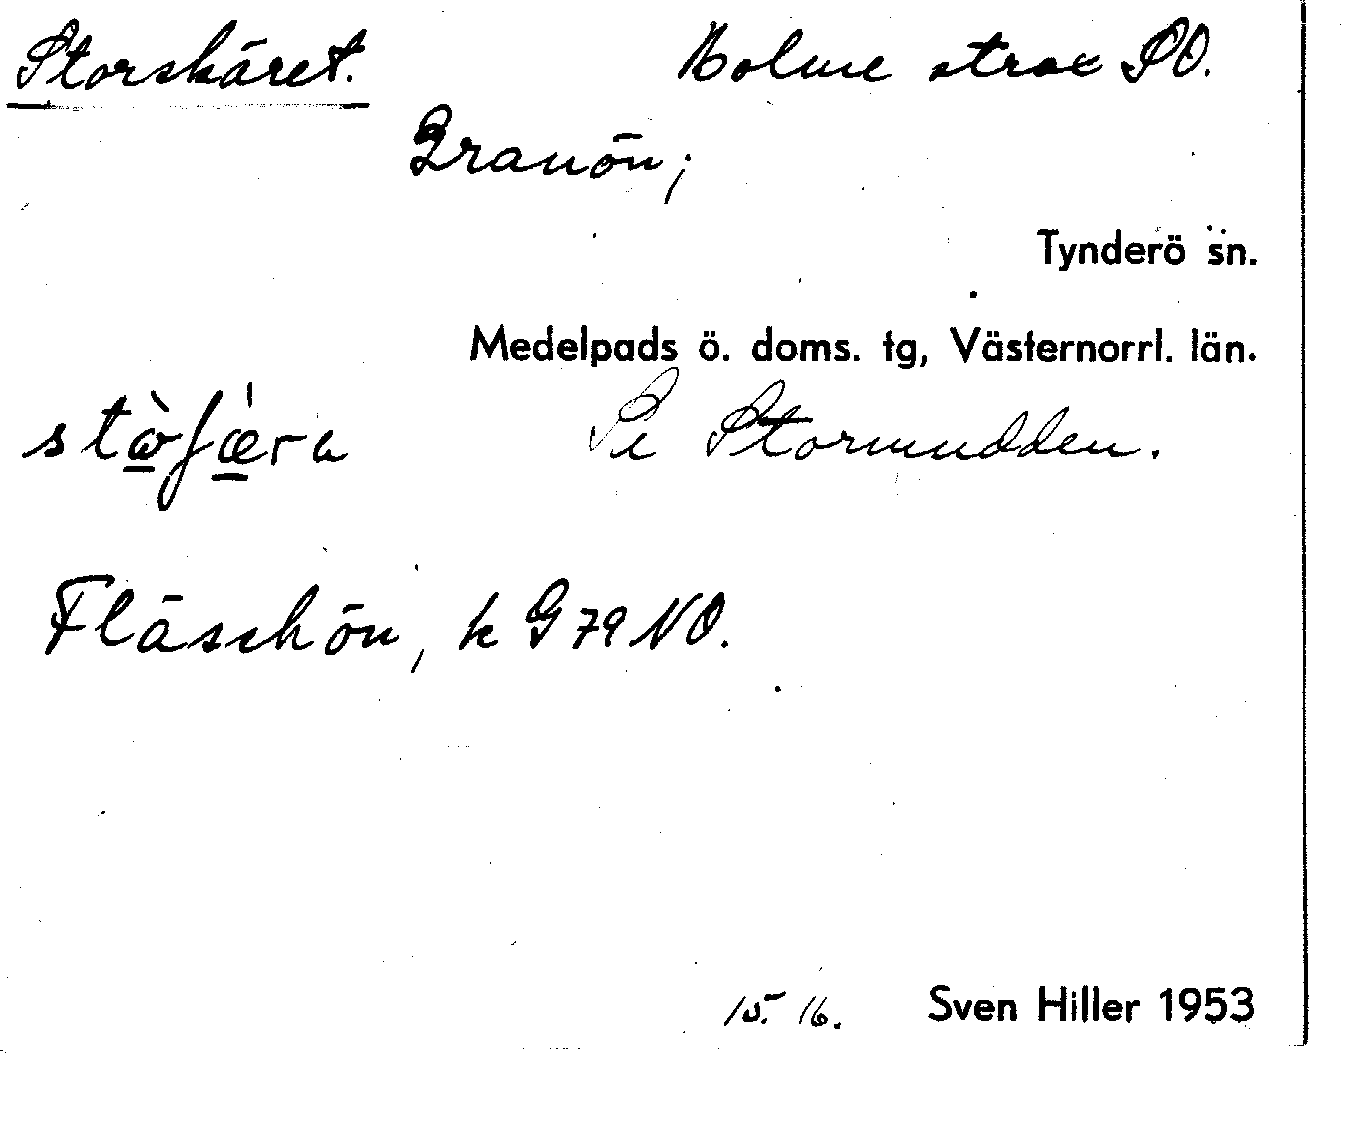 Storskäret. Holme strax SO.
Granön;
Tynderö sn.
Medelpads ö. doms. tg, Västernorrl. län.
Se Stormudden.
Fläskön, k G 79 NO.
15. 16. Sven Hiller 1953